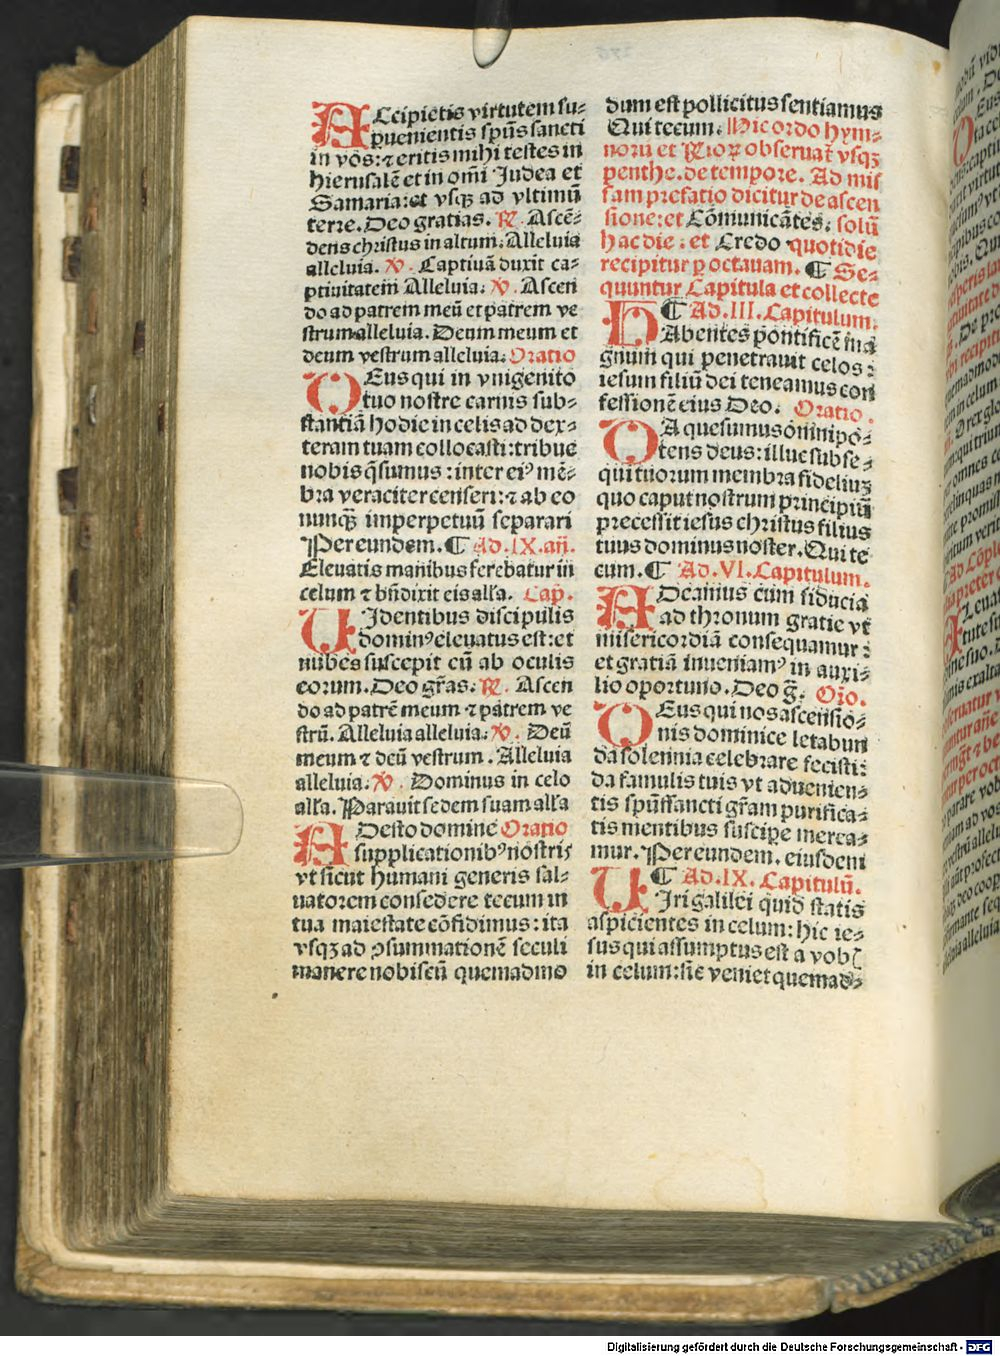 ACcipietis virtutem su-
pueniẽtis spũs sancti
in vos: ⁊ eritis mihi testes in
hierusalẽ et in om̃i Iudea et
Samaria: et vsqꝫ ad vltimũ
terre. Deo gratias. ℟. Ascẽ-
dens christus in altum. Alleluia
alleluia. ℣. Captiuã duxit ca-
ptiuitatem Alleluia: ℣. Ascen
do ad patrem meũ et patrem ve
strum alleluia. Deum meum et
deum vestrum alleluia: Oratio
DEus qui in vnigenito
tuo nostre carnis sub-
stantiã hodie in celis ad dex-
teram tuam collocasti: tribue
nobis q̃sumus: inter eiꝰ mẽ-
bra veraciter censeri: ⁊ ab eo
nunqꝫ imperpetuũ separari
Per eundem. ¶ Ad. IX. añ.
Eleuatis manibus ferebatur in
celum ⁊ bñdixit eis alła. Cap̃.
VIdentibus discipulis
dominꝰ eleuatus est: et
nubes suscepit eũ ab oculis
eorum. Deo gr̃as. ℟. Ascen
do ad patrẽ meum ⁊ patrem ve
strũ. Alleluia alleluia. ℣. Deũ
meum ⁊ deũ vestrum. Alleluia
alleluia. ℣. Dominus in celo
alła. Parauit sedem suam alła
ADesto domine Oratio
supplicationibꝰ nostris
vt sicut humani generis sal-
uatorem consedere tecum in
tua maiestate cõfidimus: ita
vsqꝫ ad ꝯsummationẽ seculi
manere nobiscũ quemadmo
dum est pollicitus sentiamus
Qui tecum. Hic ordo hym-
norũ et ℟ioꝝ obseruat᷑ vsqꝫ
penthe. de tempore. Ad mis
sam prefatio dicitur de ascen
sione: et Cõmunicãtes: solũ
hac die: et Credo quotidie
recipitur ꝑ octauam. ¶ Se-
quuntur Capitula et collecte
¶ Ad. III. Capitulum.
HAbentes pontificẽ ma
gnum qui penetrauit celos:
iesum filiũ dei teneamus con
fessionẽ eius Deo. Oratio.
DA quesumus omnipo-
tens deus: illuc subse-
qui tuorum membra fideliuꝫ
quo caput nostrum principiũ
precessit iesus christus filius
tuus dominus noster. Qui te
cum. ¶ Ad. VI. Capitulum.
ADeamus cum fiducia
ad thronum gratie vt
misericordiã consequamur:
et gratiã inueniamꝰ in auxi-
lio oportuno. Deo g̃. Or̃o.
DEus qui nos ascensio-
nis dominice letabun
da solennia celebrare fecisti:
da famulis tuis vt aduenien-
tis spũssancti gr̃am purifica-
tis mentibus suscipe merea-
mur. Per eundem. eiusdem
¶ Ad. IX. Capitulũ.
VIri galilei quid statis
aspicientes in celum: hic ie-
sus qui assumptus est a vobꝭ
in celum: sic veniet quemad-
Digitalisierung gefördert durch die Deutsche Forschungsgemeinschaft - DFG